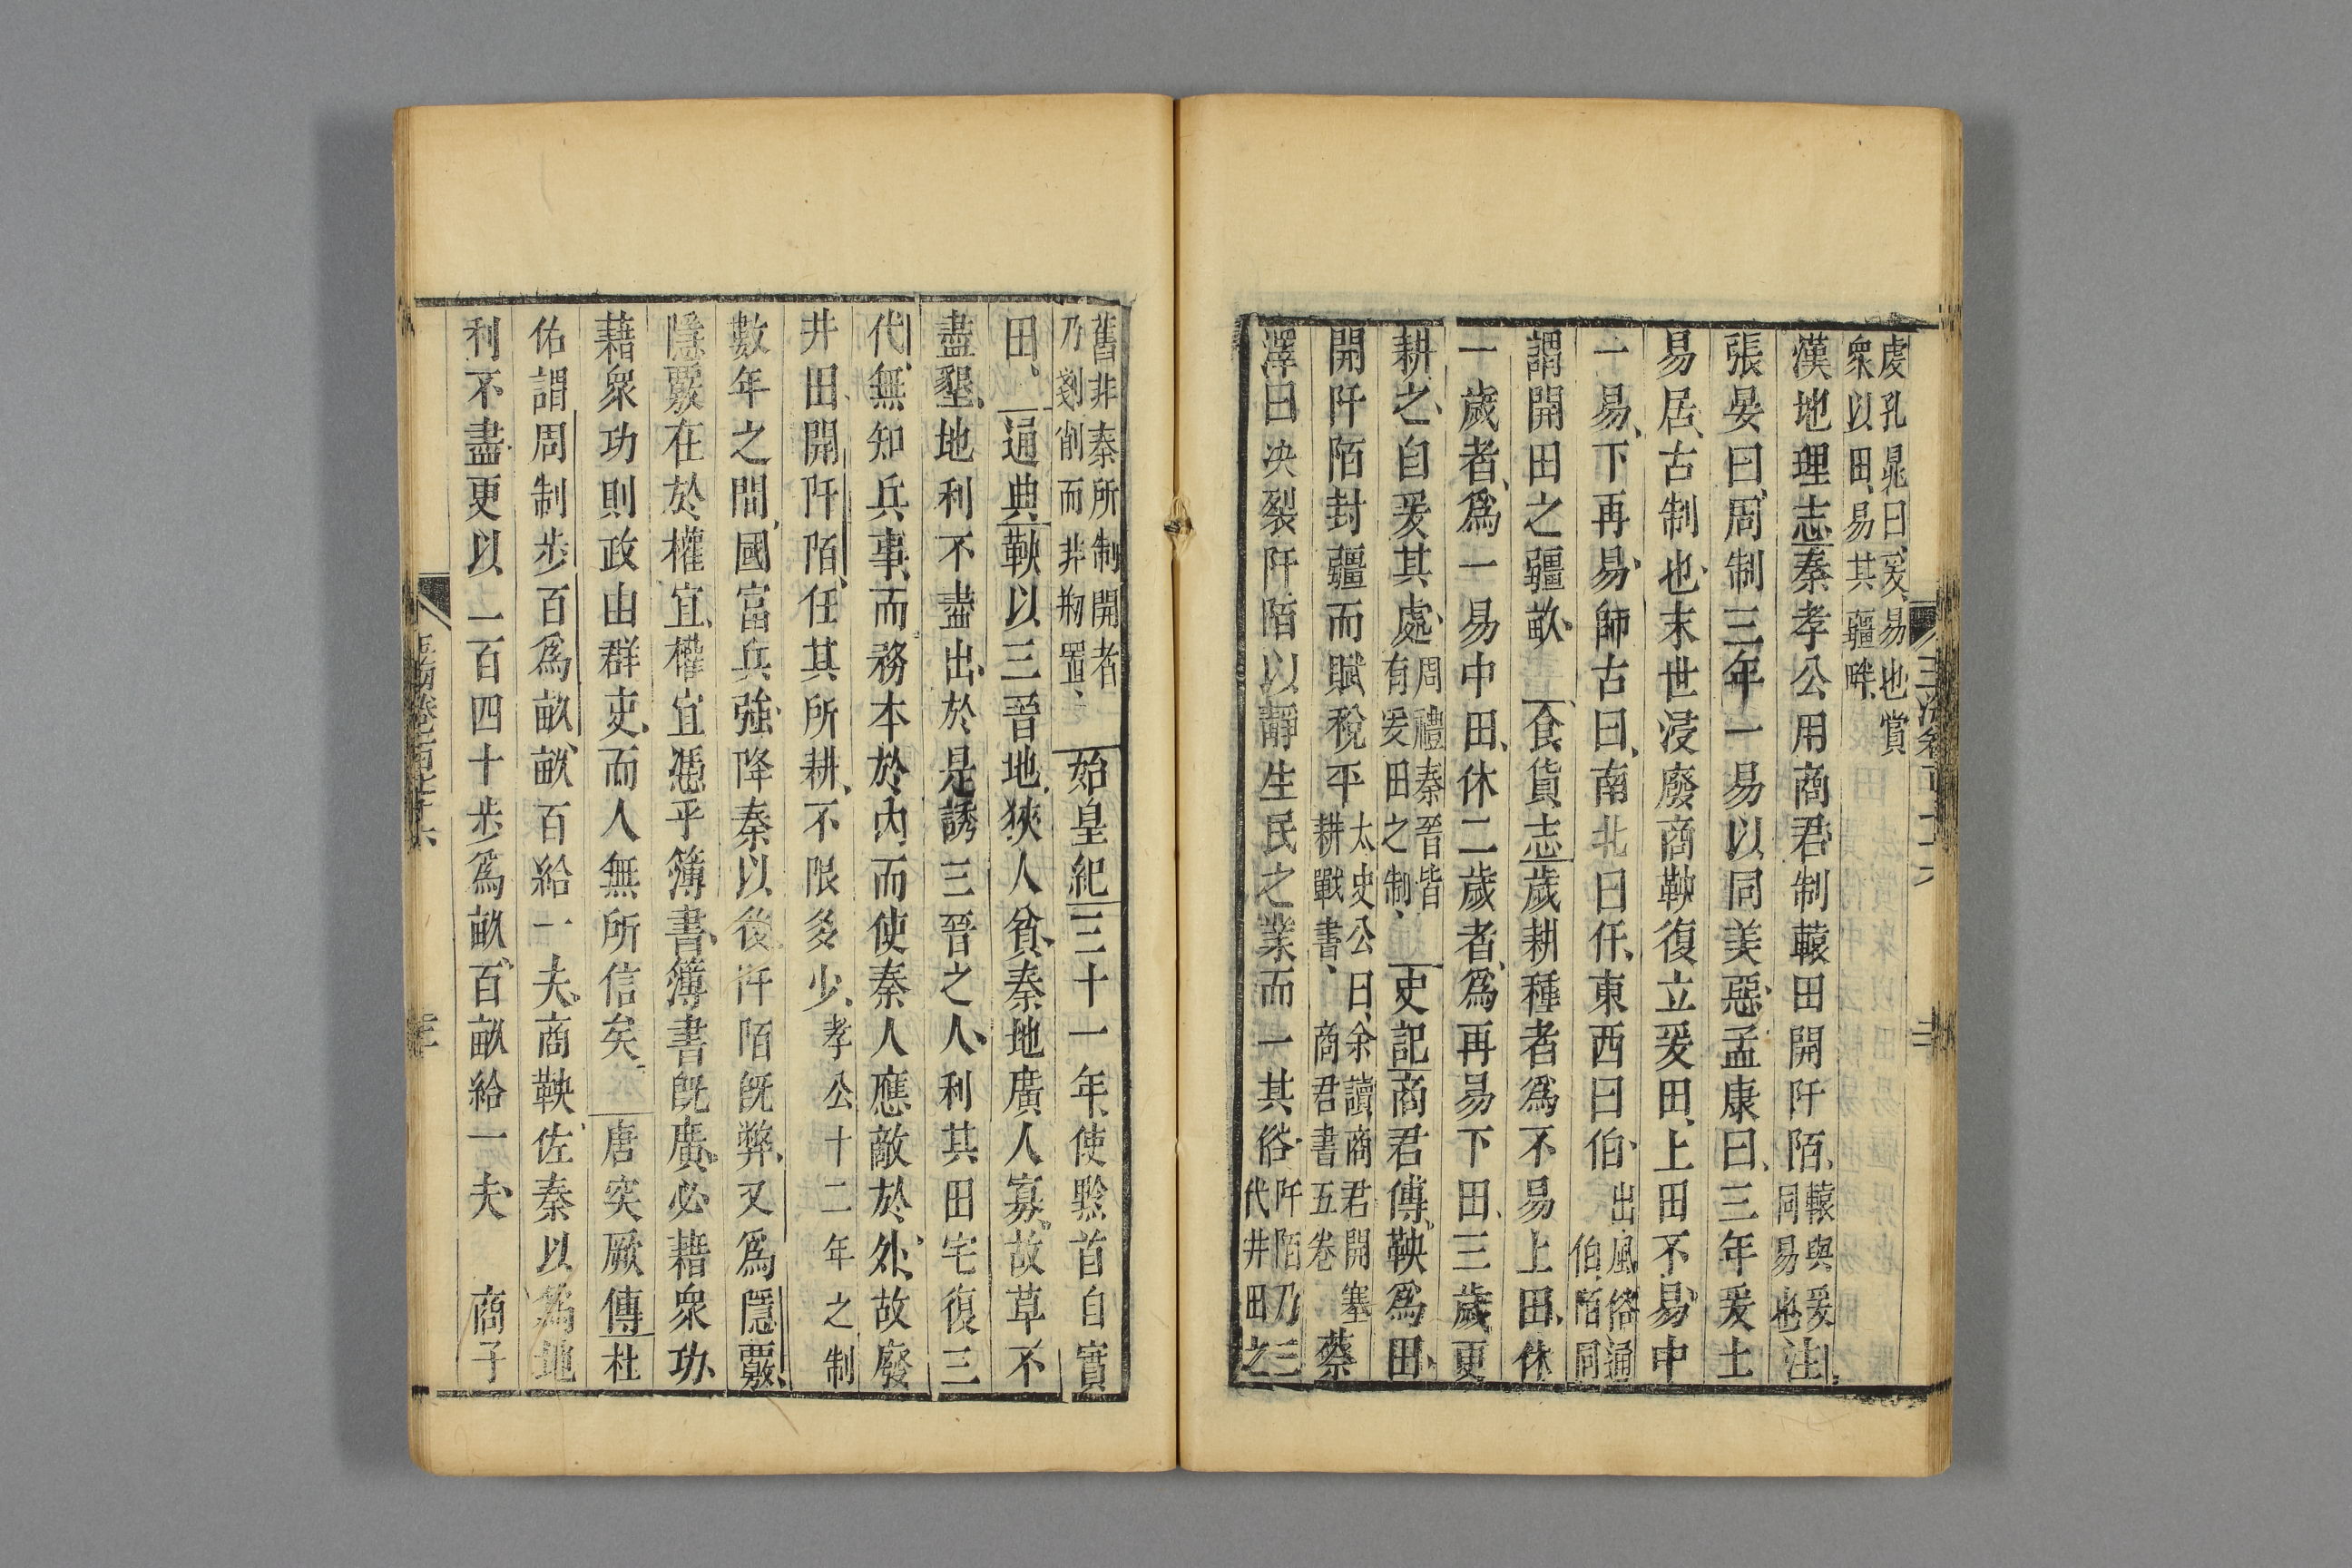 虔孔晁曰爰易也賞
衆以田易其疆畔
漢地理志秦孝公用商君制轅田開阡陌轅與爰同易也注
張晏曰周制三年一易以同美惡孟康曰三年爰土
易居古制也末世浸廢商鞅復立爰田上田不易中
一易下再易師古曰南北曰仟東西曰伯出風俗通伯陌同
謂開田之疆畝食貨志歲耕種者為不易上田休
一歲者為一易中田休二歲者為再易下田三歲更
耕之自爰其處周禮秦晉皆有爰田之制史記商君傳鞅為田
開阡陌封疆而賦稅平太史公曰余讀商君開塞耕戰書商君書五卷蔡
澤曰决裂阡陌以靜生民之業而一其俗阡陌乃三代井田之
舊非秦所制開者
乃剗削而非剏置始皇紀三十一年使黔首自實
田通典鞅以三晉地狹人貧秦地廣人寡故草不
盡墾地利不盡出於是誘三晉之人利其田宅復三
代無知兵事而務本於内而使秦人應敵於外故廢
井田開阡陌任其所耕不限多少孝公十二年之制
數年之間國富兵強降秦以後阡陌旣弊又為隱覈
隱覈在於權宜權宜憑乎簿書簿書旣廣必藉衆功
藉衆功則政由群吏而人無所信矣唐突厥傳杜
佑謂周制步百為畝畝百給一夫商鞅佐秦以為地
利不盡更以二百四十步為畝百畝給一夫　商子